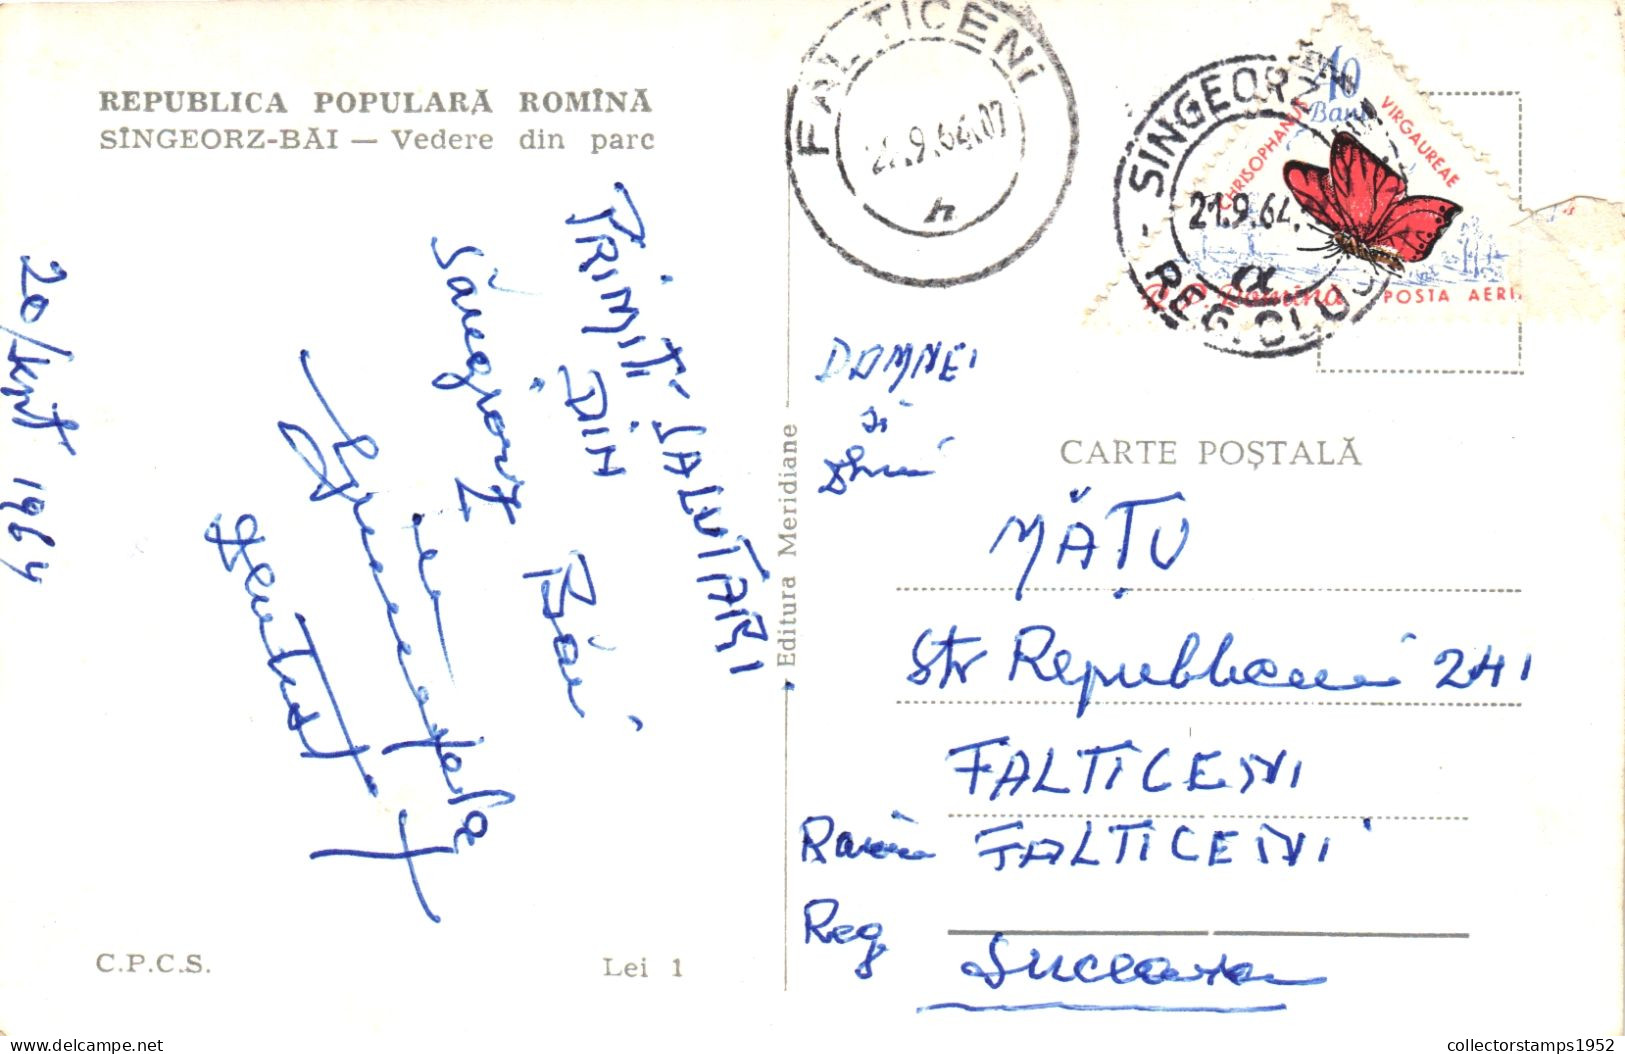 REPUBLICA POPULARĂ ROMÎNĂ
SÎNGEORZ-BĂI — Vedere din parc
PRIMIȚI SALUTĂRI
DIN
Sângeorz Băi
20/sept 1964
C.P.C.S.
Lei 1
Editura Meridiane
FALTICENI
21.9.64.07
SINGEORZ
21.9.64.
REG. CLUJ
40
Bani
CHRISOPHANUS
VIRGAUREAE
R.P. Romina
POSTA AERI
CARTE POȘTALĂ
DOMNEI
și
MĂȚU
Str Republicii 241
FALTICENI
Raion FALTICENI
Reg Suceava
collectorstamps1952